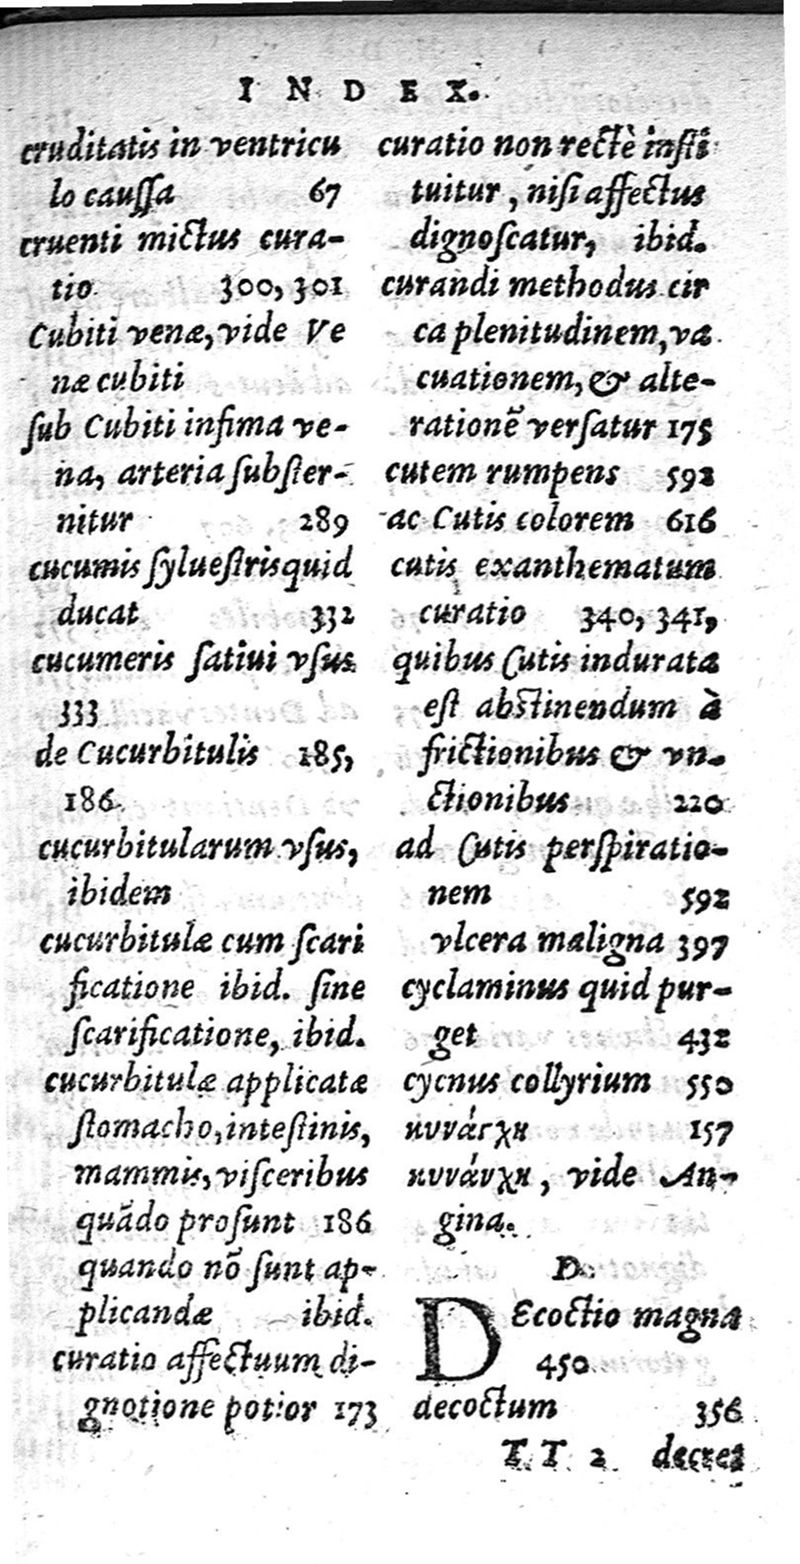 INDEX.
cruditatis in ventricu
lo caussa 67
cruenti mictus cura-
tio 300, 301
Cubiti venæ, vide Ve
næ cubiti
sub Cubiti infima ve-
na, arteria subster-
nitur 289
cucumis syluestris quid
ducat 332
cucumeris satiui vsus
333
de Cucurbitulis 185,
186.
cucurbitularum vsus,
ibidem
cucurbitulæ cum scari
ficatione ibid. sine
scarificatione, ibid.
cucurbitulæ applicatæ
stomacho, intestinis,
mammis, visceribus
quãdo prosunt 186
quando nõ sunt ap-
plicandæ ibid.
curatio affectuum di-
gnotione potior 173
curatio non rectè insti
tuitur, nisi affectus
dignoscatur, ibid.
curandi methodus cir
ca plenitudinem, va
cuationem, & alte-
rationẽ versatur 175
cutem rumpens 592
ac Cutis colorem 616
cutis exanthematum
curatio 340, 341,
quibus Cutis indurata
est abstinendum à
frictionibus & vn-
ctionibus 220
ad Cutis perspiratio-
nem 592
vlcera maligna 397
cyclaminus quid pur-
get 432
cycnus collyrium 550
κυνάγχη 157
κυνάνχη, vide An-
gina.
D.
DEcoctio magna
450
decoctum 356
TT 2 decret